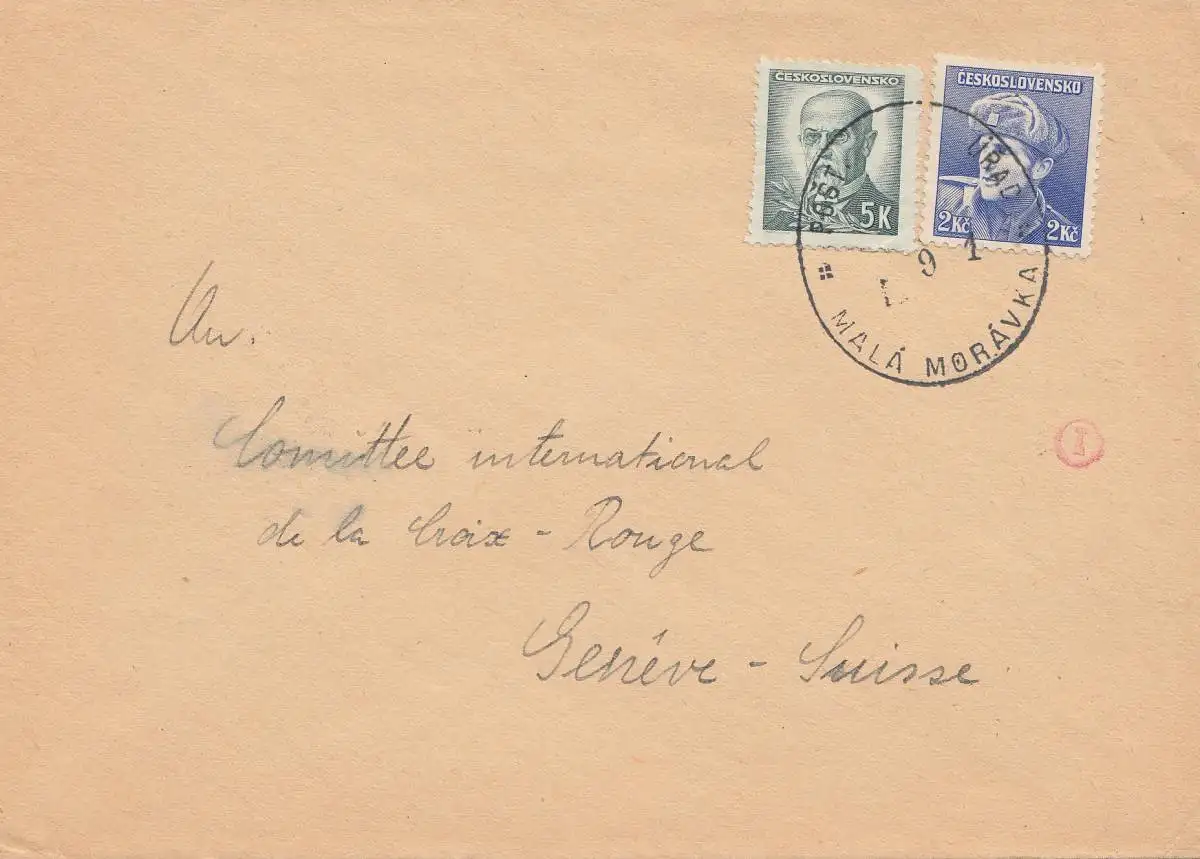 ČESKOSLOVENSKO
5K
ČESKOSLOVENSKO
2Kč 2Kč
ÚŘAD
9 1
MALÁ MORÁVKA
An.
Comittee international
de la Croix - Rouge
Genéve - Suisse
I